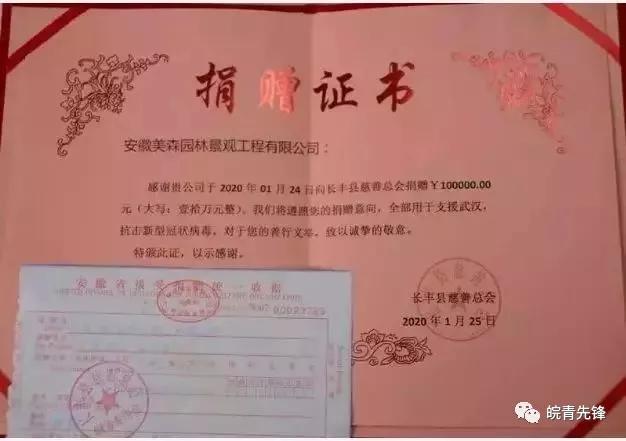 捐赠证书
安徽美森园林景观工程有限公司：
感谢贵公司于2020年01月24日向长丰县慈善总会捐赠￥100000.00
元（大写：壹拾万元整）。我们将遵照您的捐赠意向，全部用于支援武汉，
抗击新型冠状病毒，对于您的善行义举，致以诚挚的敬意。
特颁此证，以示感谢。
长丰县慈善总会
2020年1月25日
安徽省接受捐赠统一收据
皖青先锋